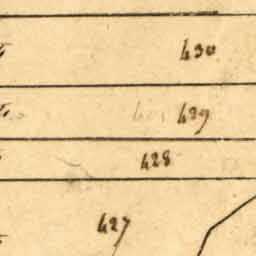 430
429
428
427